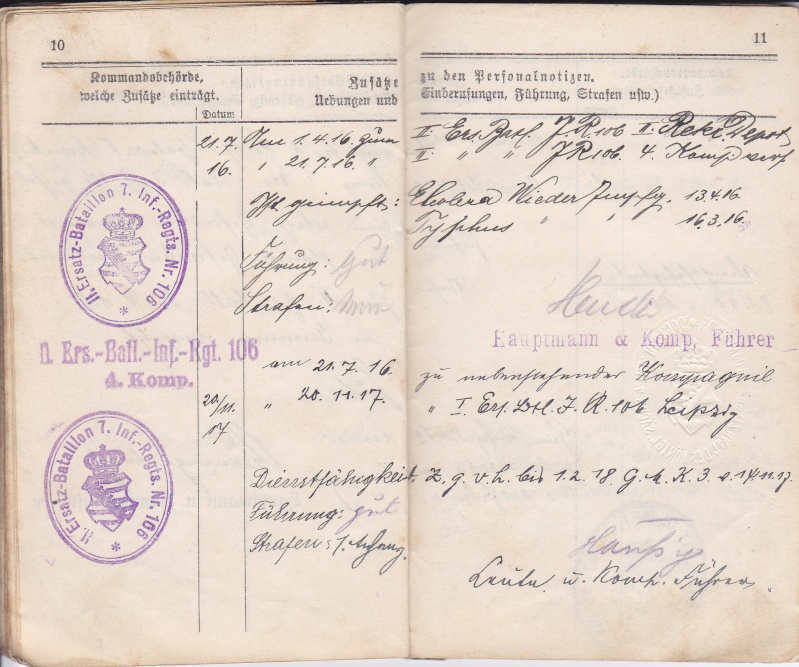 10
11
Kommandobehörde,
welche Zusätze einträgt.
Datum
Zusätze zu den Personalnotizen.
Uebungen und Einberufungen, Führung, Strafen usw.)
21.7. Am 1.4.16. zum II. Ers. Batl. J.R. 106 II. Rekr. Depot
16. " 21.7.16. " II. " " J.R 106. 4. Komp vers
Ist geimpft: Cholera Wieder Impfg. 13.4.16.
Typhus " " 16.3.16.
II. Ersatz-Bataillon 7. Inf.-Regts. Nr. 106
Führung: Gut
Strafen:
Hauptmann & Komp. Führer
II. Ers.-Batl.-Inf.-Rgt. 106
4. Komp.
am 21.7.16. zu nebenstehender Kompagnie
20/11. 17 " 20.11.17. " I. Ers. Btl. J.R. 106 Leipzig
II. Ersatz-Bataillon 7. Inf.-Regts. Nr. 106
Dienstfähigkeit. z. g. v. H. bis 1.2.18 G. K. 3. v. 14.11.17.
Führung: gut
Strafen:
Leutn. u. Komp. Führer